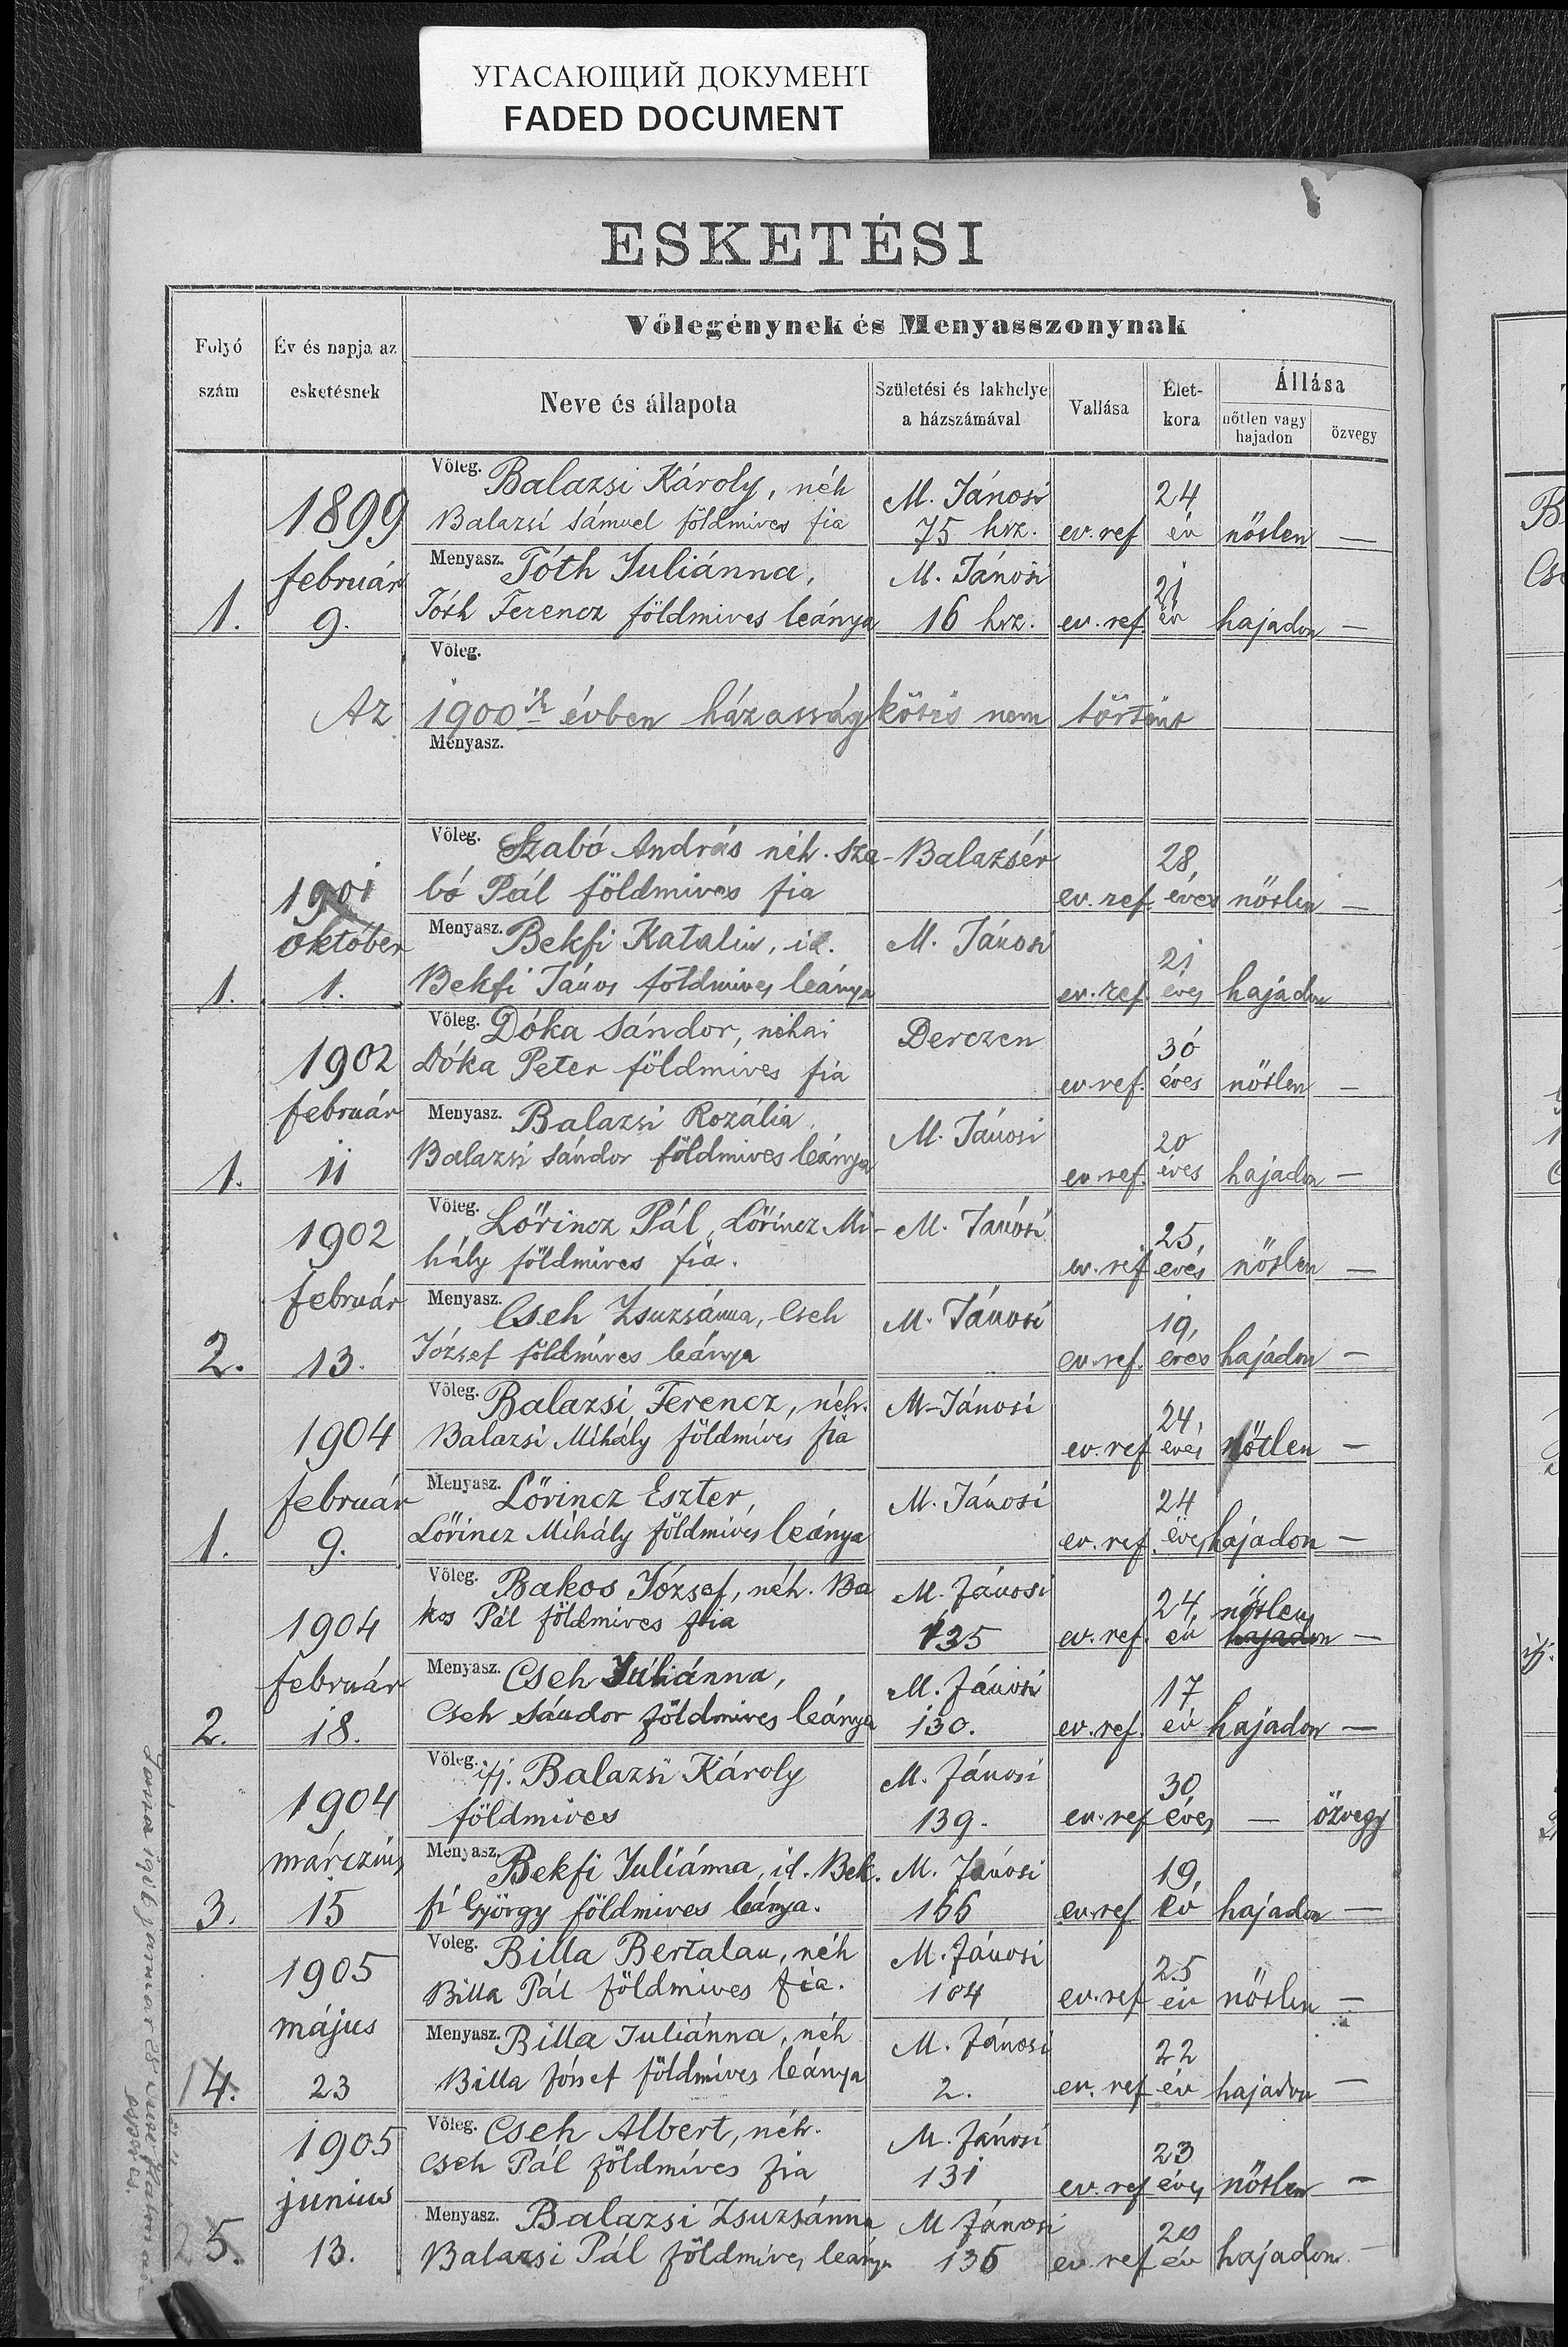 УГАСАЮЩИЙ ДОКУМЕНТ
FADED DOCUMENT
ESKETÉSI
Folyó szám
Év és napja az esketésnek
Vőlegénynek és Menyasszonynak
Neve és állapota
Születési és lakhelye a házszámával
Vallása
Élet-kora
Állása
nőtlen vagy hajadon
özvegy
Vőleg. Balazsi Károly, néh M. Jánosi 24
1899 Balazsi Sámuel földmives fia 75 hsz. ev. ref év nőtlen —
február Menyasz. Tóth Juliánna, M. Jánosi 21
1. 9. Tóth Ferencz földmives leánya 16 hsz. ev. ref. év hajadon —
Vőleg.
Az 1900ik évben házasság kötés nem történt
Menyasz.
Vőleg. Szabó András néh. Sza- Balazsér 28
1901 bó Pál földmives fia ev. ref. éves nőtlen —
október Menyasz. Bekfi Katalin, id. M. Jánosi 21
1. 1. Bekfi János földmives leánya ev. ref. éves hajadon
Vőleg. Dóka Sándor, néhai Derczen 30
1902 Dóka Peter földmives fia ev. ref. éves nőtlen —
február Menyasz. Balazsi Rozália M. Jánosi 20
1. 11 Balazsi Sándor földmives leánya ev. ref. éves hajadon —
Vőleg. Lőrincz Pál, Lőrincz Mi- M. Jánosi 25,
1902 hály földmives fia. ev. ref éves nőtlen —
február Menyasz. Cseh Zsuzsánna, Cseh M. Jánosi 19,
2. 13. József földmives leánya ev. ref. éves hajadon —
Vőleg. Balazsi Ferencz, néh. M-Jánosi 24,
1904 Balazsi Mihály földmives fia ev. ref éves nőtlen —
február Menyasz. Lőrincz Eszter, M. Jánosi 24
1. 9. Lőrincz Mihály földmives leánya ev. ref. éves hajadon —
Vőleg. Bakos József, néh. Ba M. Jánosi 24, nőtlen
1904 kos Pál földmives fia 135 ev. ref. év hajadon —
február Menyasz. Cseh Juliánna, M. Jánosi 17
2. 18. Cseh Sándor földmives leánya 130. ev. ref. év hajadon —
Vőleg. ifj. Balazsi Károly M. Jánosi 30
1904 földmives 139. ev. ref éves — özvegy
márczius Menyasz. Bekfi Juliánna, id. Bek. M. Jánosi 19,
3. 15 fi György földmives leánya. 166 ev. ref év hajadon —
Vőleg. Billa Bertalan, néh M. Jánosi 25
1905 Billa Pál földmives fia. 104 ev. ref év nőtlen —
május Menyasz. Billa Juliánna, néh M. Jánosi 22
4. 23 Billa József földmives leánya 2. ev. ref év hajadon —
Vőleg. Cseh Albert, néh. M. Jánosi 23
1905 Cseh Pál földmives fia 131 ev. ref éves nőtlen —
junius Menyasz. Balazsi Zsuzsánna M Jánosi 20
5. 13. Balazsi Pál földmives leánya 136 ev. ref év hajadon —